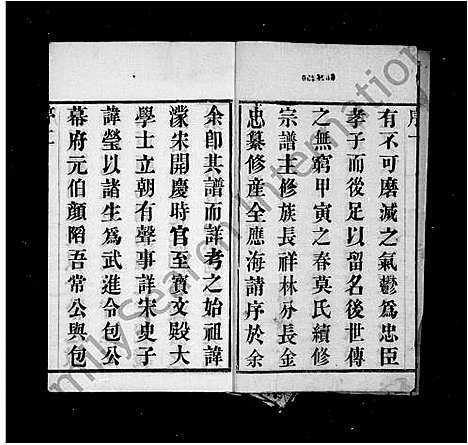 有不可磨滅之氣鬱為忠臣
孝子而後足以留名後世傳
之無窮甲寅之春莫氏續修
宗譜主修族長祥林分長金
忠纂修産全應海請序於余
余卽其譜而詳考之始祖諱
濛宋開慶時官至寶文殿大
學士立朝有聲事詳宋史子
諱瑩以諸生為武進令包公
幕府元伯顔䧟吾常公與包
序二